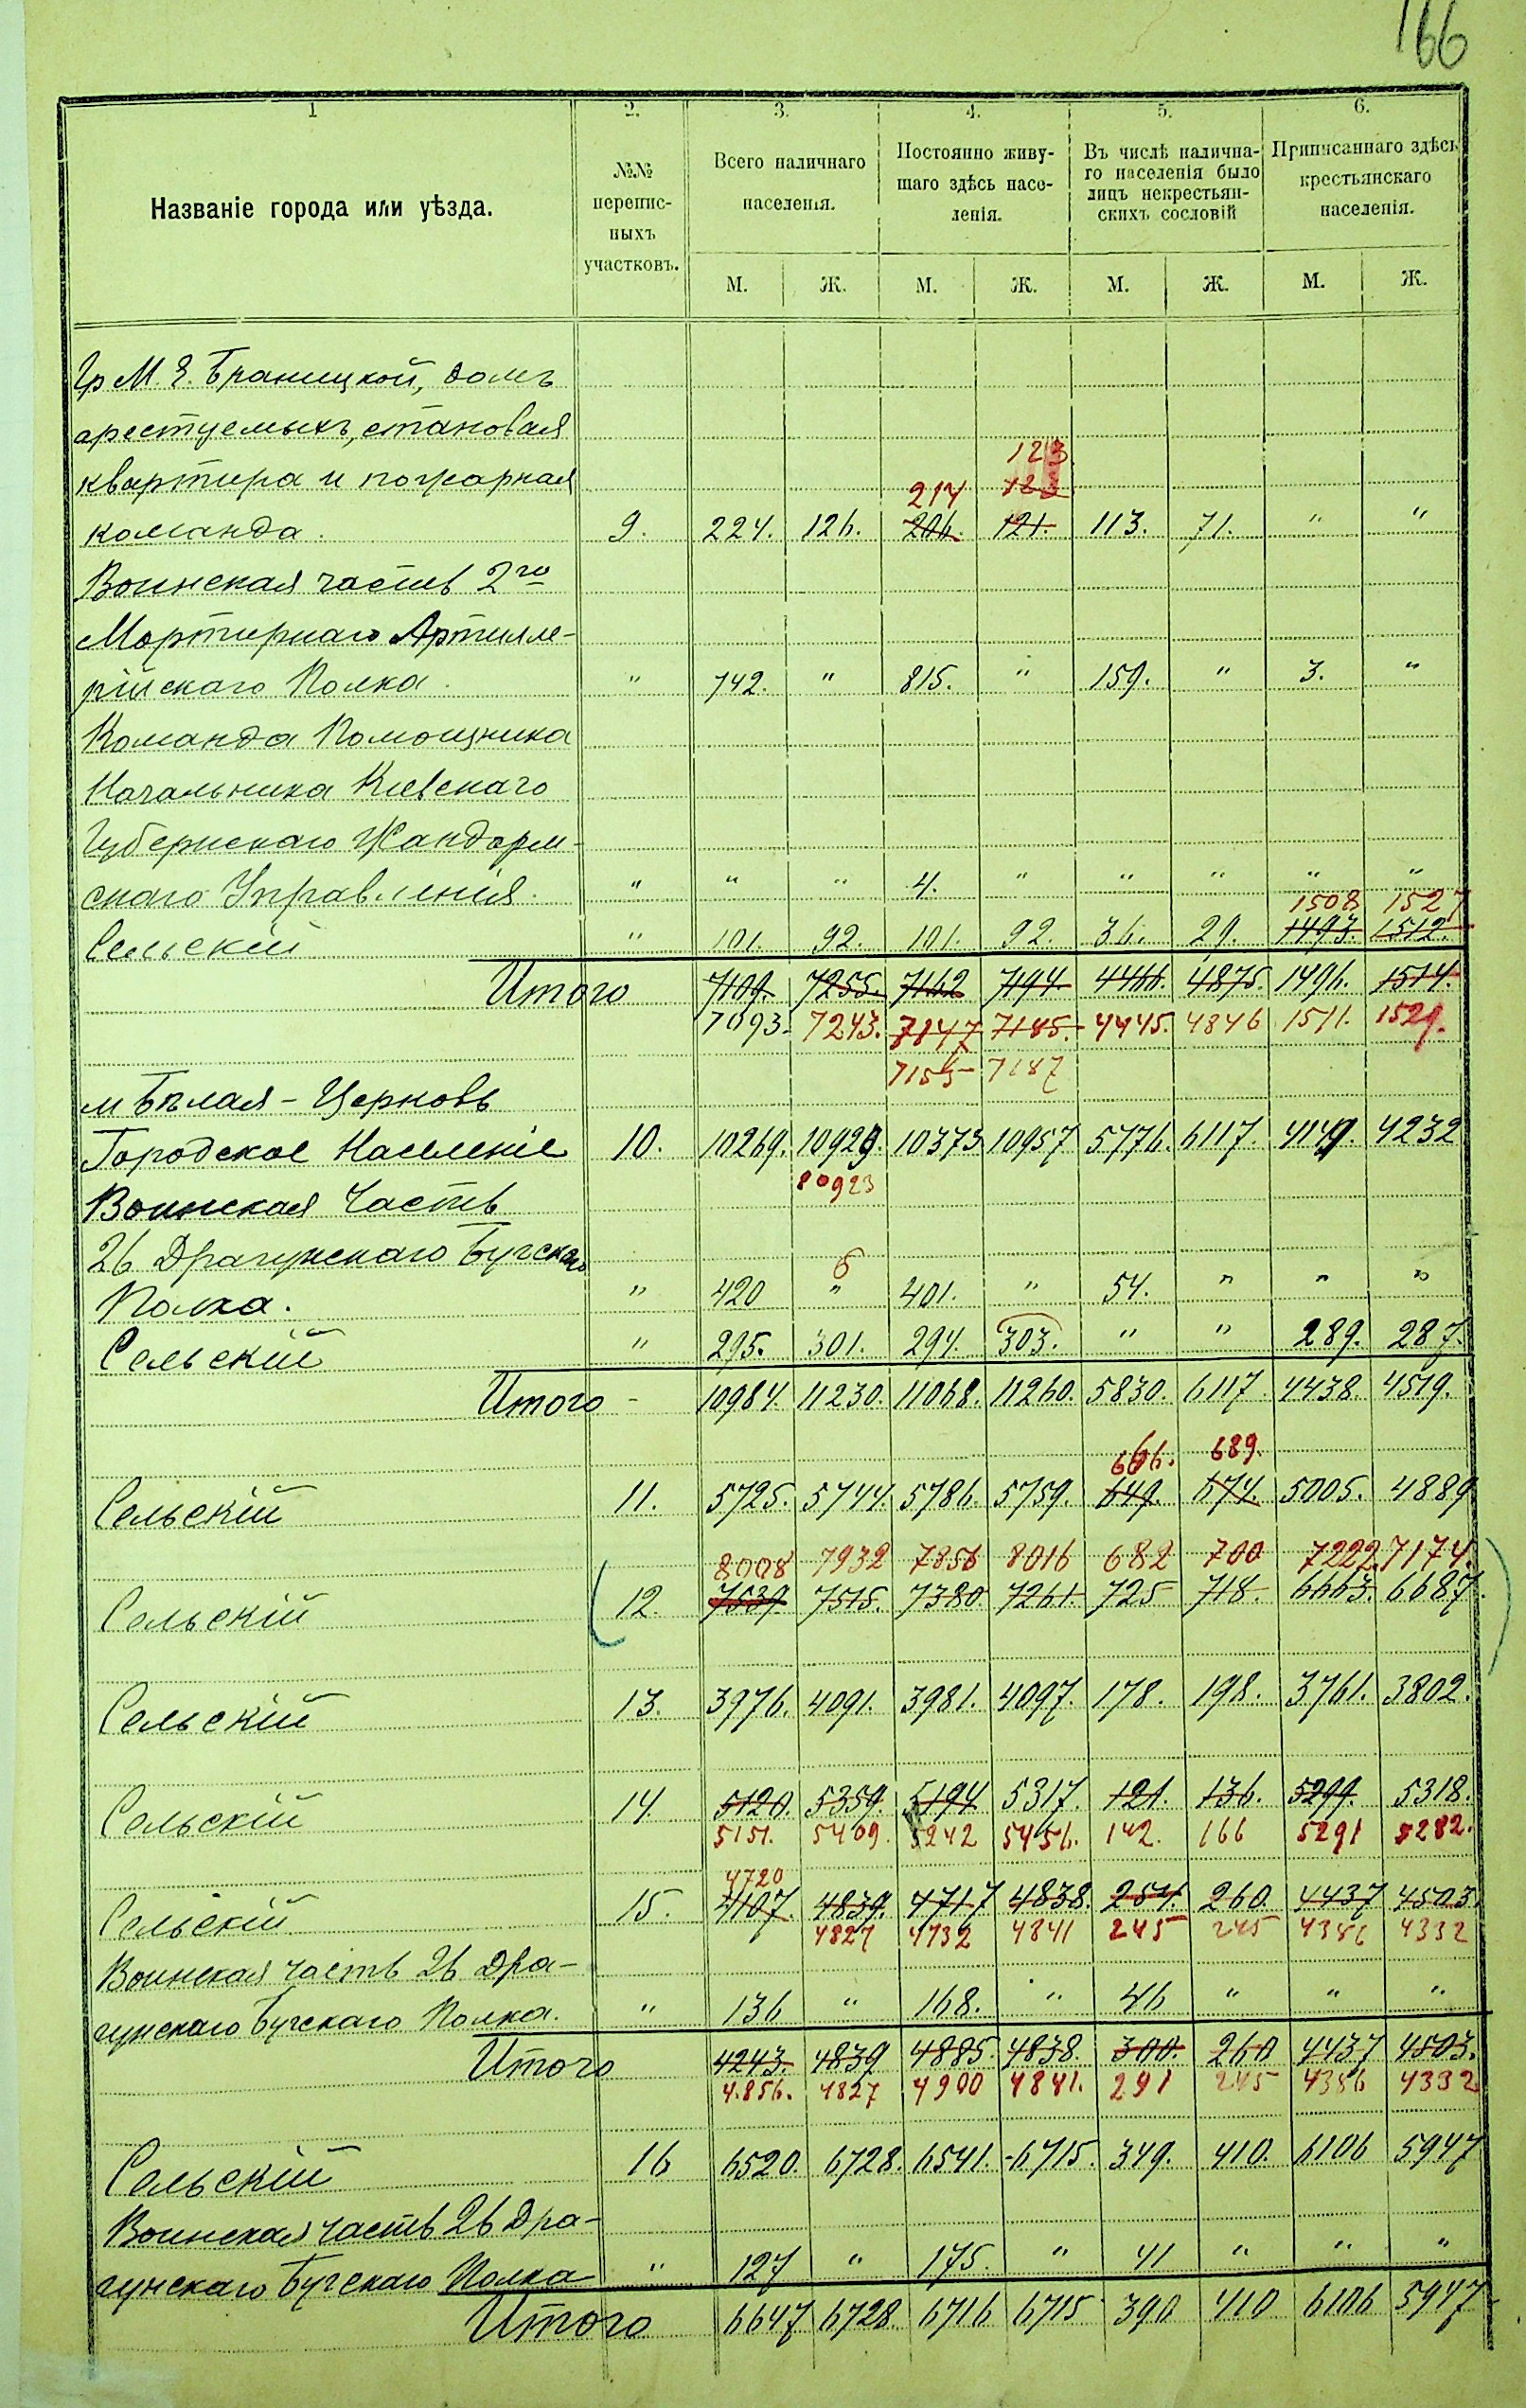 166
1 2. 3. 4. 5. 6.
Названіе города или уѣзда.
№№ перепис-
ныхъ
участковъ.
Всего наличнаго
населенія.
Постоянно живу-
щаго здѣсь насе-
ленія.
Въ числѣ налична-
го населенія было
лицъ некрестьян-
скихъ сословій
Приписаннаго здѣсь
крестьянскаго
населенія.
М. Ж. М. Ж. М. Ж. М. Ж.
Гр М. Е. Браницкой, домъ
арестуемыхъ, становая
123
квартира и пожарная
214 123
команда. 9. 224. 126. 206. 121. 113. 71. " "
Воинская часть 2го
Мортирнаго Артилле-
рійскаго Полка. " 742. " 815. " 159. " 3. "
Команда Помощника
Начальника Кіевскаго
Губернскаго Жандарм-
скаго Управленія. " " " 4. " " " " "
1508 1527
Сельскій " 101. 92. 101. 92. 36. 29. 1493. 1512.
Итого 7109. 7255. 7162 7194. 4466. 4875. 1496. 1514.
7093. 7243. 7147 7185. 4445. 4846 1511. 1529.
7155 7187
м Бѣлая-Церковь
Городское Населеніе 10. 10269. 10929. 10373 10957 5776. 6117. 4149. 4232
10923
Воинская Часть
26 Драгунскаго Бугскаго
6
Полка. " 420 " 401. " 54. " " "
Сельскій " 295. 301. 294. 303. " " 289. 287.
Итого - 10984. 11230. 11068. 11260. 5830. 6117. 4438. 4519.
666. 689.
Сельскій 11. 5725. 5744. 5786. 5759. 649. 674. 5005. 4889
8008 7932 7856 8016 682 700 7222. 7174.
Сельскій 12. 7539. 7515. 7380. 7261. 725 718. 6663. 6687.
Сельскій 13. 3976. 4091. 3981. 4097. 178. 198. 3761. 3802.
Сельскій 14. 5120. 5359. 5194 5317. 121. 136. 5299. 5318.
5151. 5409. 5242 5456. 142. 166 5291 5282.
4720
Сельскій 15. 4107. 4839. 4717 4838. 254. 260. 4437 4503.
4827 4732 4841 245 245 4356 4332
Воинская часть 26 Дра-
гунскаго Бугскаго Полка. " 136 " 168. " 46 " " "
Итого 4243. 4839 4885. 4838. 300. 260 4437 4503.
4.856. 4827 4900 4841. 291 245 4356 4332
Сельскій 16 6520. 6728. 6541. 6715. 349. 410. 6106 5947
Воинская часть 26 Дра-
гунскаго Бугскаго Полка " 127 " 175. " 41 " " "
Итого 6647 6728. 6716 6715 390 410 6106 5947